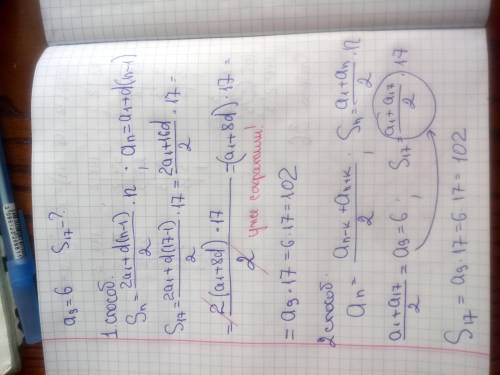 a₉=6 S₁₇-?
1 способ.
Sₙ = (2a₁+d(n-1))/2 · n ; aₙ=a₁+d(n-1)
S₁₇ = (2a₁+d(17-1))/2 · 17 = (2a₁+16d)/2 · 17 =
= 2(a₁+8d)·17/2 = (a₁+8d)·17 =
уже сократили!
= a₉·17=6·17=102
2 способ
aₙ = (aₙ₋ₖ+aₙ₊ₖ)/2 ; Sₙ = (a₁+aₙ)/2 · n
(a₁+a₁₇)/2 = a₉=6 ; S₁₇ = (a₁+a₁₇)/2 · 17
S₁₇ = a₉·17=6·17 = 102